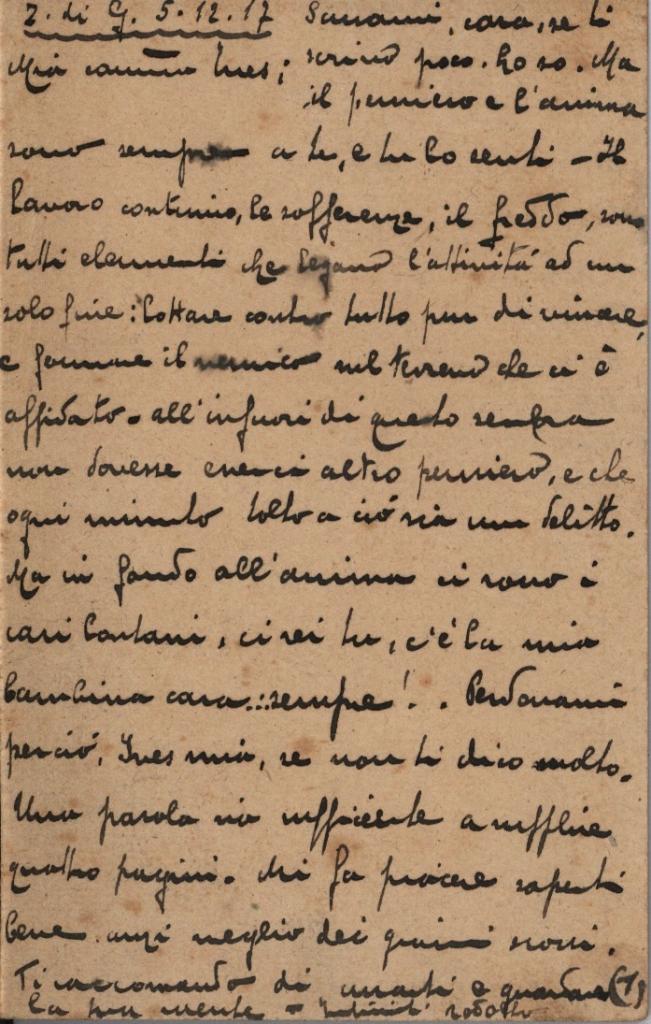 Z. di G. 5.12.17
Mia carissima Ines; Scusami, cara, se ti
scrivo poco. Lo so. Ma
il pensiero e l'anima
sono sempre a te, e tu lo senti - Il
lavoro continuo, le sofferenze, il freddo, sono
tutti elementi che legano l'attività ad un
solo fine: lottare contro tutto pur di vincere,
e fermare il nemico sul terreno che ci è
affidato. all'infuori di questo sembra
non dovesse esserci altro pensiero, e che
ogni minuto tolto a ciò sia un delitto.
Ma in fondo all'anima ci sono i
cari lontani, ci sei tu, c'è la mia
bambina cara...sempre!.. Perdonami
perciò, Ines mia, se non ti dico molto.
Una parola sia sufficiente a supplire
quattro pagine. Mi fa piacere saperti
bene anzi meglio dei giorni scorsi.
Ti raccomando di e (1)
la tua mente -